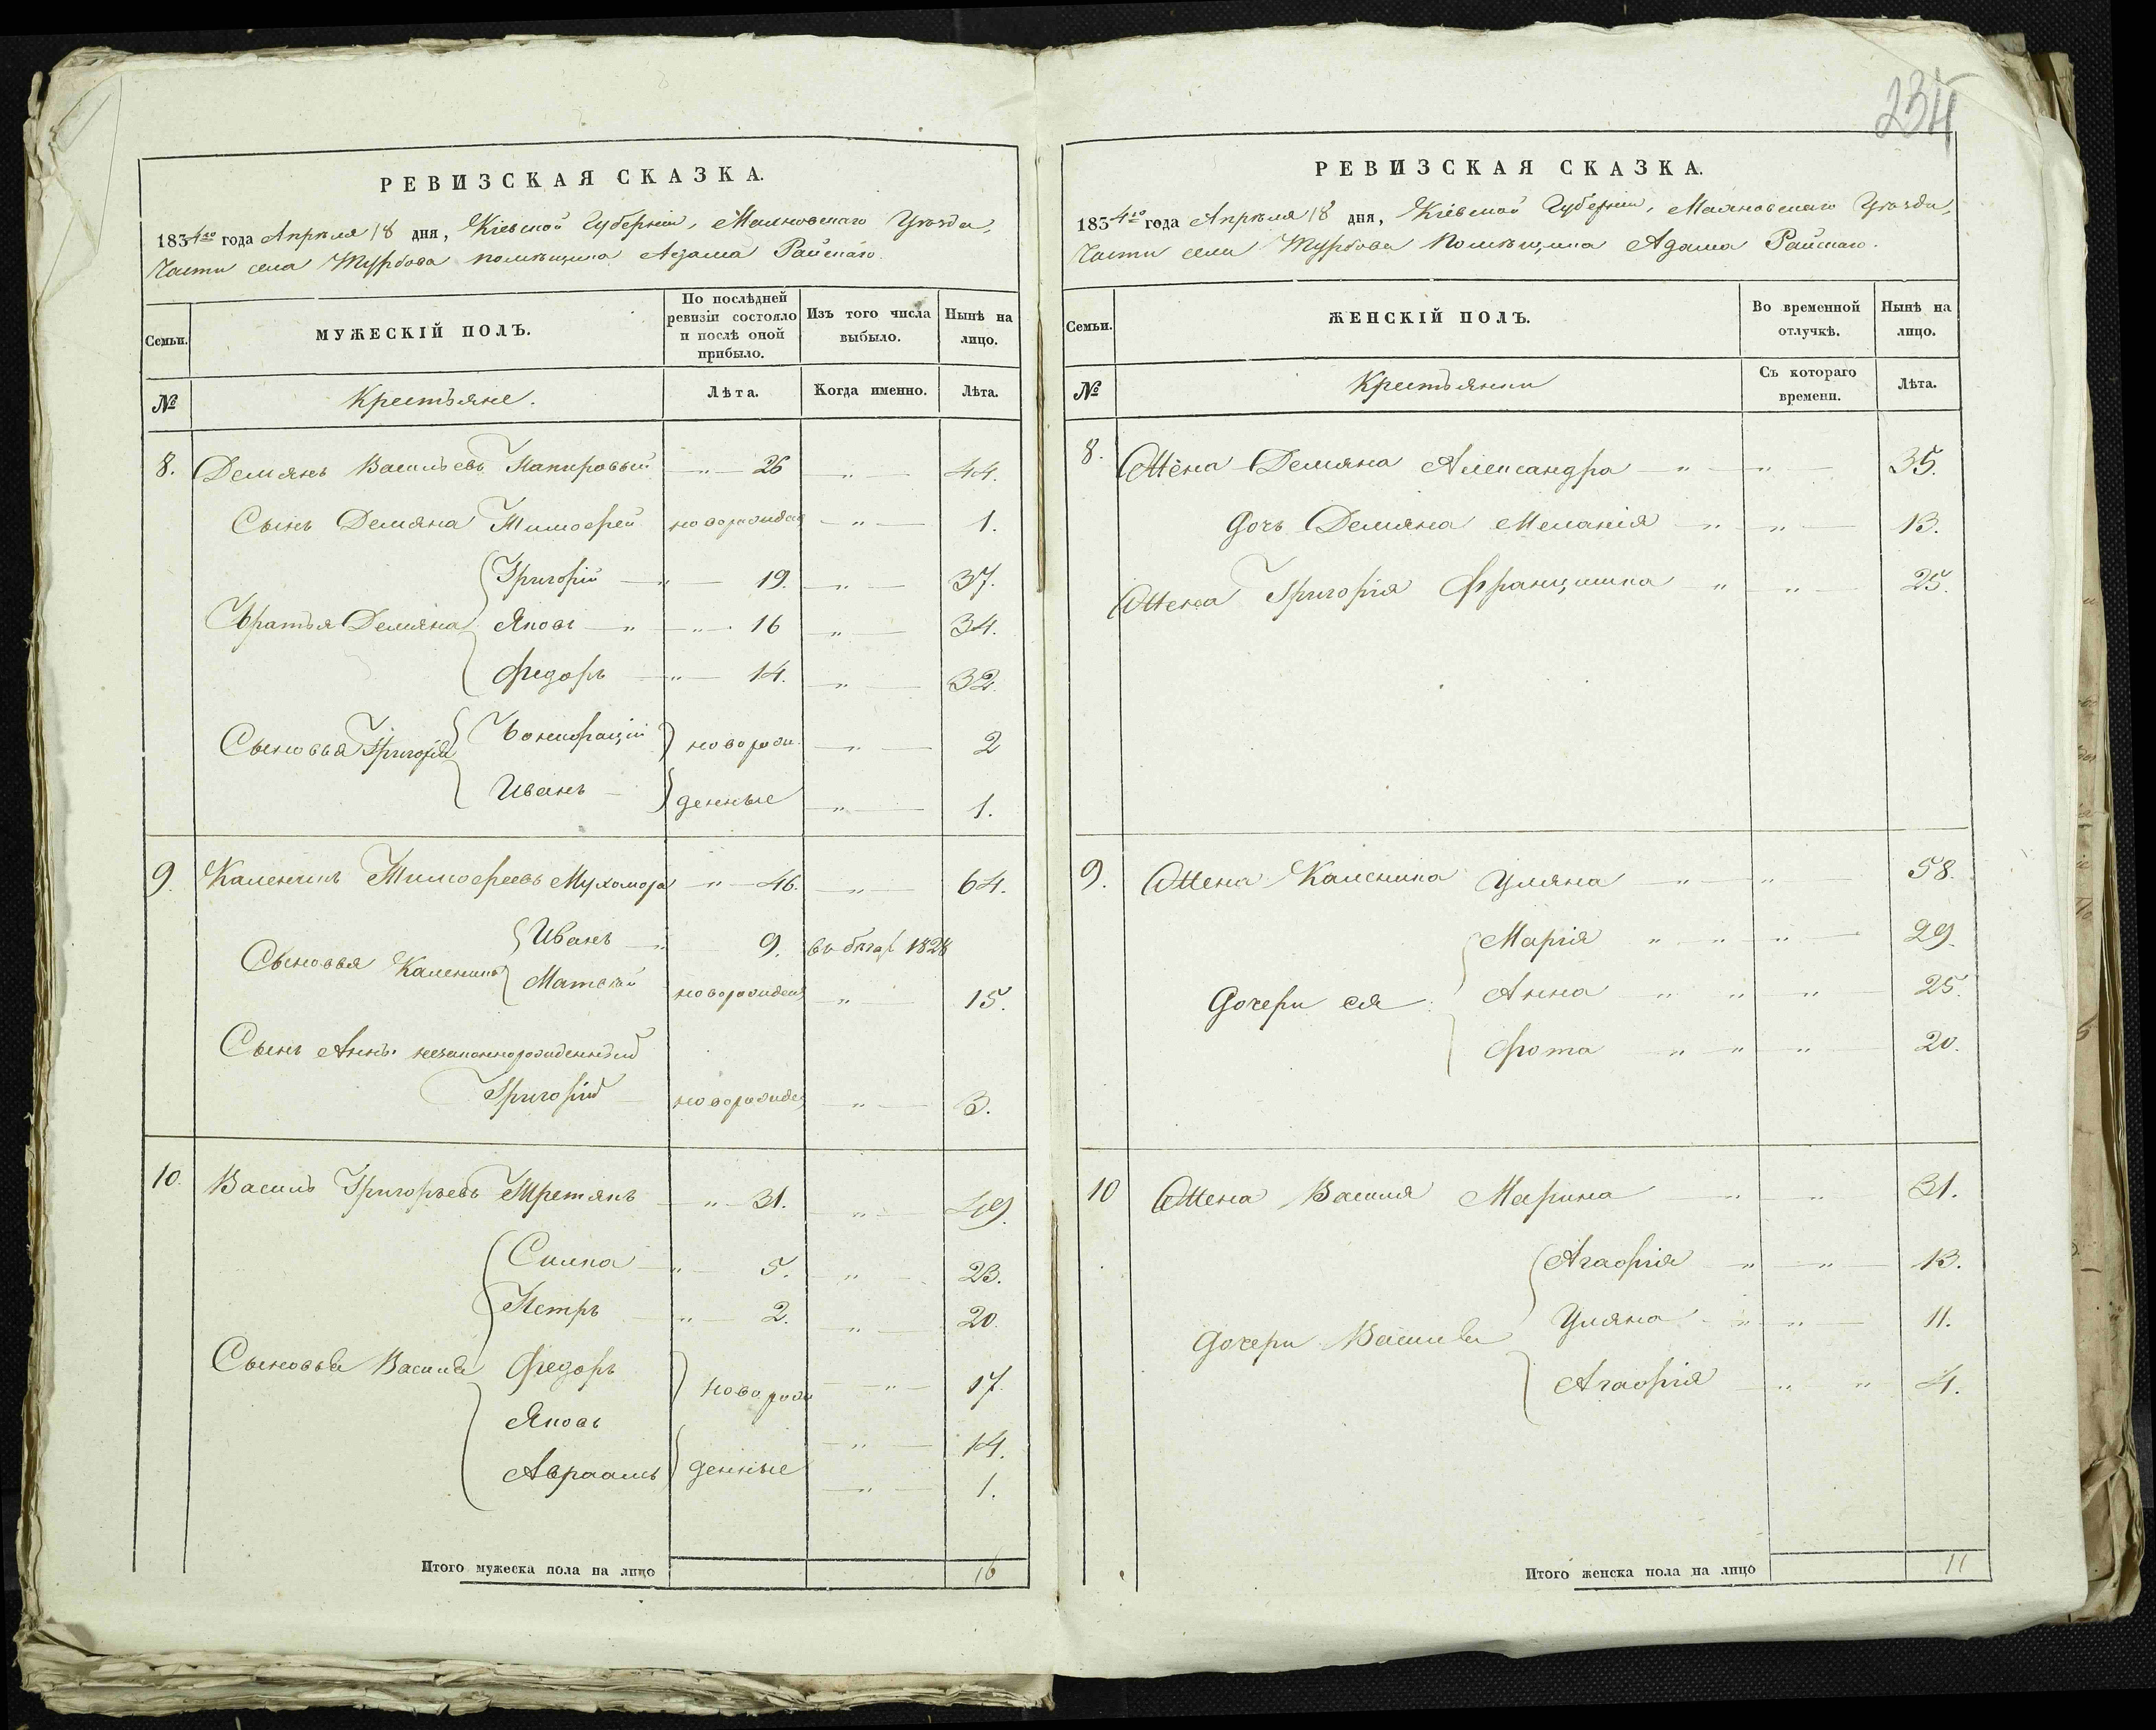 234
РЕВИЗСКАЯ СКАЗКА.
1834го года Апрѣля 18 дня, Кіевской Губерніи, Махновскаго Уѣзда,
Части села Турбова помѣщика Адама Райскаго.
Семьи.
МУЖЕСКІЙ ПОЛЪ.
По послѣдней ревизіи состояло и послѣ оной прибыло.
Изъ того числа выбыло.
Нынѣ на лицо.
№
Крестьяне.
Лѣта.
Когда именно.
Лѣта.
8. Демянъ Васильевъ Папировый — " — 26 — " — 44.
Сынъ Демяна Тимофей новорожден — " — 1.
Григорій — " — 19. — " — 37.
Братья Демяна Яковъ — " — " — 16 — " — 34.
Федоръ — " — 14. — " — 32.
Сыновья Григорія Бонифацій новорож — " — 2
Иванъ — денные — " — 1.
9. Каленикъ Тимофеевъ Мухомора — " — 46. — " — 64.
Иванъ — " — 9. въ бѣгах 1828
Сыновья Каленика Матвѣй новорожден — " — 15.
Сынъ Анны незаконнорожденный
Григорій — новорожде — " — 3.
10. Василь Григорьевъ Третякъ — " — 31. — " — 49.
Силка — " — 5. — " — 23.
Петръ — " — 2. — " — 20.
Сыновья Василя Федоръ новорож — " — 17.
Яковъ — " — 14.
Авраамъ денные — " — 1.
Итого мужеска пола на лицо 16
РЕВИЗСКАЯ СКАЗКА.
1834го года Апрѣля 18 дня, Кіевской Губерніи, Махновскаго Уѣзда,
Части села Турбова Помѣщика Адама Райскаго.
Семьи.
ЖЕНСКІЙ ПОЛЪ.
Во временной отлучкѣ.
Нынѣ на лицо.
№
Крестьянки
Съ котораго времени.
Лѣта.
8. Жена Демяна Александра — " — " — 35.
Дочь Демяна Меланія " — " — 13.
Жена Григорія Францишка " — " — 25.
9. Жена Каленика Уляна — " — " — 58.
Марія " — " — " — 29.
Дочери ея Анна " — " — " — 25.
Фота — " — " — " — 20.
10 Жена Василя Марина — " — " — 31.
Агафія — " — " — 13.
Дочери Василя Уляна — " — " — 11.
Агафія — " — " — 4.
Итого женска пола на лицо 11